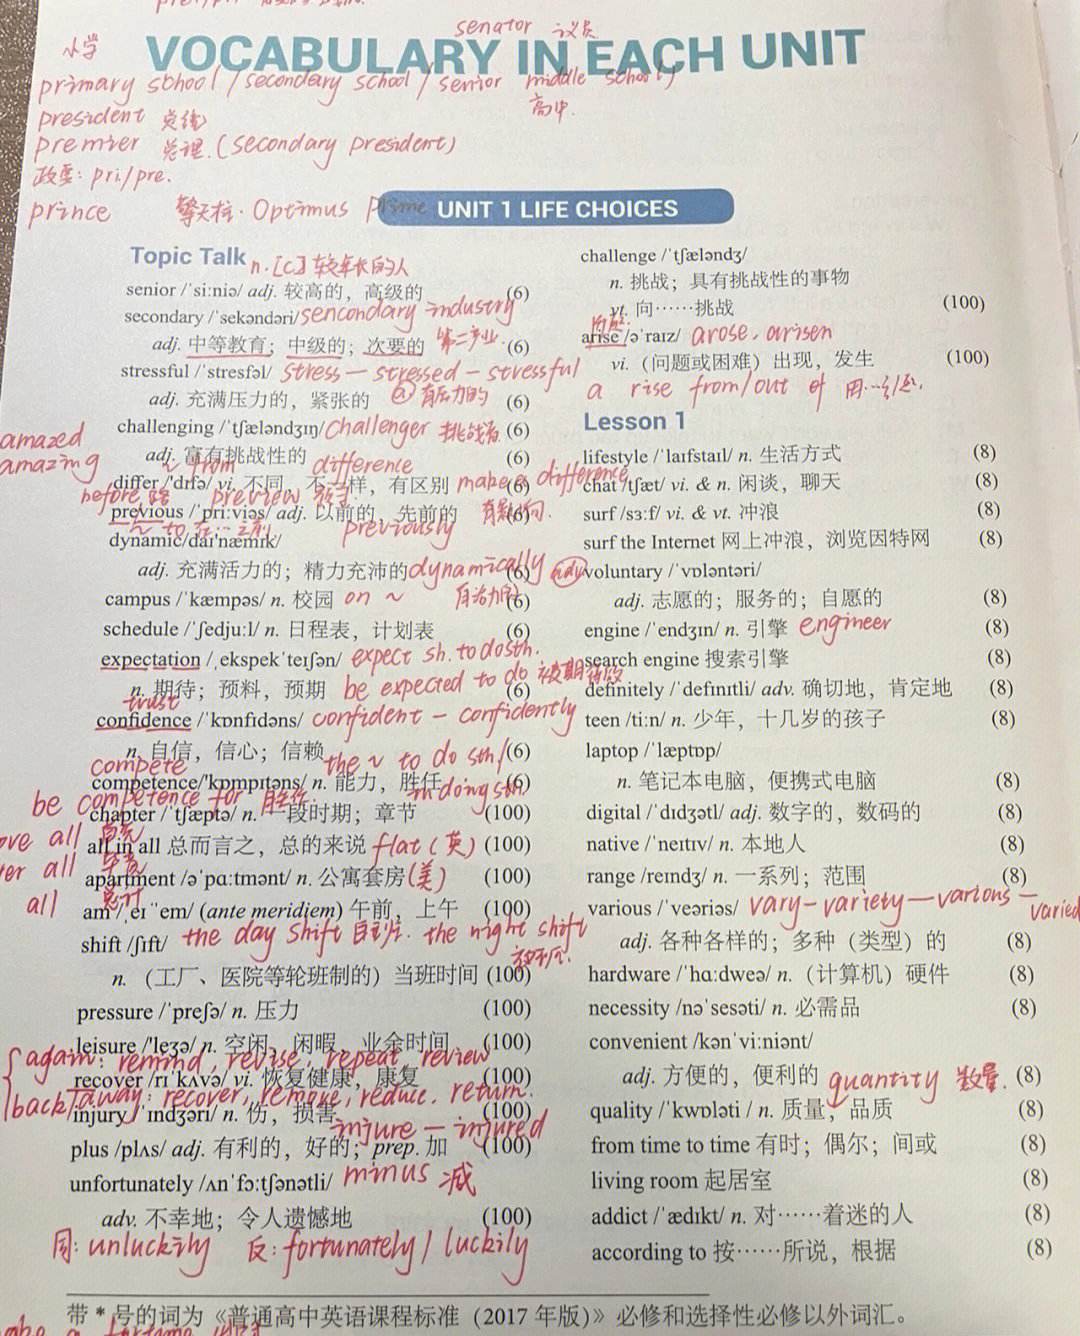 senator 议员
小学
VOCABULARY IN EACH UNIT
primary school / secondary school / senior middle school)
高中.
president 总统
premier 总理. (secondary president)
政要: pri./pre.
prince 擎天柱. Optimus prime
UNIT 1 LIFE CHOICES
Topic Talk n.[C] 较年长的人
senior /ˈsiːniə/ adj. 较高的，高级的 (6)
secondary /ˈsekəndəri/ sencondary industry
adj. 中等教育；中级的；次要的 第二产业. (6)
stressful /ˈstresfəl/ stress — stressed - stressful
adj. 充满压力的，紧张的 ⓐ 有压力的 (6)
challenging /ˈtʃæləndʒɪŋ/ challenger 挑战者 (6)
amazed
adj. 富有挑战性的 (6)
amazing
~ from difference
differ /ˈdɪfə/ vi. 不同，不一样，有区别 make a difference (6)
before preview 预习
previous /ˈpriːviəs/ adj. 以前的，先前的 有影响. (6)
~ to 在…之前 previously
dynamic/daɪˈnæmɪk/
adj. 充满活力的；精力充沛的 dynamically adv (6)
campus /ˈkæmpəs/ n. 校园 on ~ (6)
schedule /ˈʃedjuːl/ n. 日程表，计划表 (6)
expectation /ˌekspekˈteɪʃən/ expect sb. to do sth.
n. 期待；预料，预期 be expected to do 被期待做 (6)
trust
confidence /ˈkɒnfɪdəns/ confident - confidently
n. 自信，信心；信赖 the ~ to do sth/ (6)
compete
competence/ˈkɒmpɪtəns/ n. 能力，胜任 in doing sth. (6)
be competence for 胜任.
chapter /ˈtʃæptə/ n. 一段时期；章节 (100)
ove all 首先
all in all 总而言之，总的来说 flat (英) (100)
ver all 毕竟
apartment /əˈpɑːtmənt/ n. 公寓套房 (美) (100)
all 总计
am /ˌeɪ ˈem/ (ante meridiem) 午前，上午 (100)
shift /ʃɪft/ the day shift 白班. the night shift
n. （工厂、医院等轮班制的）当班时间 (100)
pressure /ˈpreʃə/ n. 压力 (100)
leisure /ˈleʒə/ n. 空闲，闲暇，业余时间 (100)
again: remind, revise, repeat, review
recover /rɪˈkʌvə/ vi. 恢复健康，康复 (100)
back/away: recover, remove, reduce. return.
injury /ˈɪndʒəri/ n. 伤，损害 (100)
injure — injured
plus /plʌs/ adj. 有利的，好的；prep. 加 (100)
unfortunately /ʌnˈfɔːtʃənətli/ minus 减
adv. 不幸地；令人遗憾地 (100)
同: unluckily 反: fortunately / luckily
challenge /ˈtʃæləndʒ/
n. 挑战；具有挑战性的事物
vt. 向……挑战 (100)
arise /əˈraɪz/ arose. arisen
vi. （问题或困难）出现，发生 (100)
a rise from/out of 由…引起.
Lesson 1
lifestyle /ˈlaɪfstaɪl/ n. 生活方式 (8)
chat /tʃæt/ vi. & n. 闲谈，聊天 (8)
surf /sɜːf/ vi. & vt. 冲浪 (8)
surf the Internet 网上冲浪，浏览因特网 (8)
voluntary /ˈvɒləntəri/
adj. 志愿的；服务的；自愿的 (8)
engine /ˈendʒɪn/ n. 引擎 engineer (8)
search engine 搜索引擎 (8)
definitely /ˈdefɪnɪtli/ adv. 确切地，肯定地 (8)
teen /tiːn/ n. 少年，十几岁的孩子 (8)
laptop /ˈlæptɒp/
n. 笔记本电脑，便携式电脑 (8)
digital /ˈdɪdʒətl/ adj. 数字的，数码的 (8)
native /ˈneɪtɪv/ n. 本地人 (8)
range /reɪndʒ/ n. 一系列；范围 (8)
various /ˈveəriəs/ vary - variety — various - varied
adj. 各种各样的；多种（类型）的 (8)
hardware /ˈhɑːdweə/ n. （计算机）硬件 (8)
necessity /nəˈsesəti/ n. 必需品 (8)
convenient /kənˈviːniənt/
adj. 方便的，便利的 quantity 数量. (8)
quality /ˈkwɒləti / n. 质量，品质 (8)
from time to time 有时；偶尔；间或 (8)
living room 起居室 (8)
addict /ˈædɪkt/ n. 对……着迷的人 (8)
according to 按……所说，根据 (8)
带 * 号的词为《普通高中英语课程标准（2017 年版）》必修和选择性必修以外词汇。